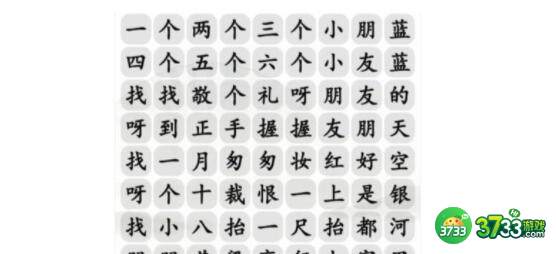 一个两个三个小朋蓝
四个五个六个小友蓝
找找敬个礼呀朋友的
呀到正手握握友朋天
找一月匆匆妆红好空
呀个十裁恨一上是银
找小八抬一尺抬都河
3733 3733游戏
.com